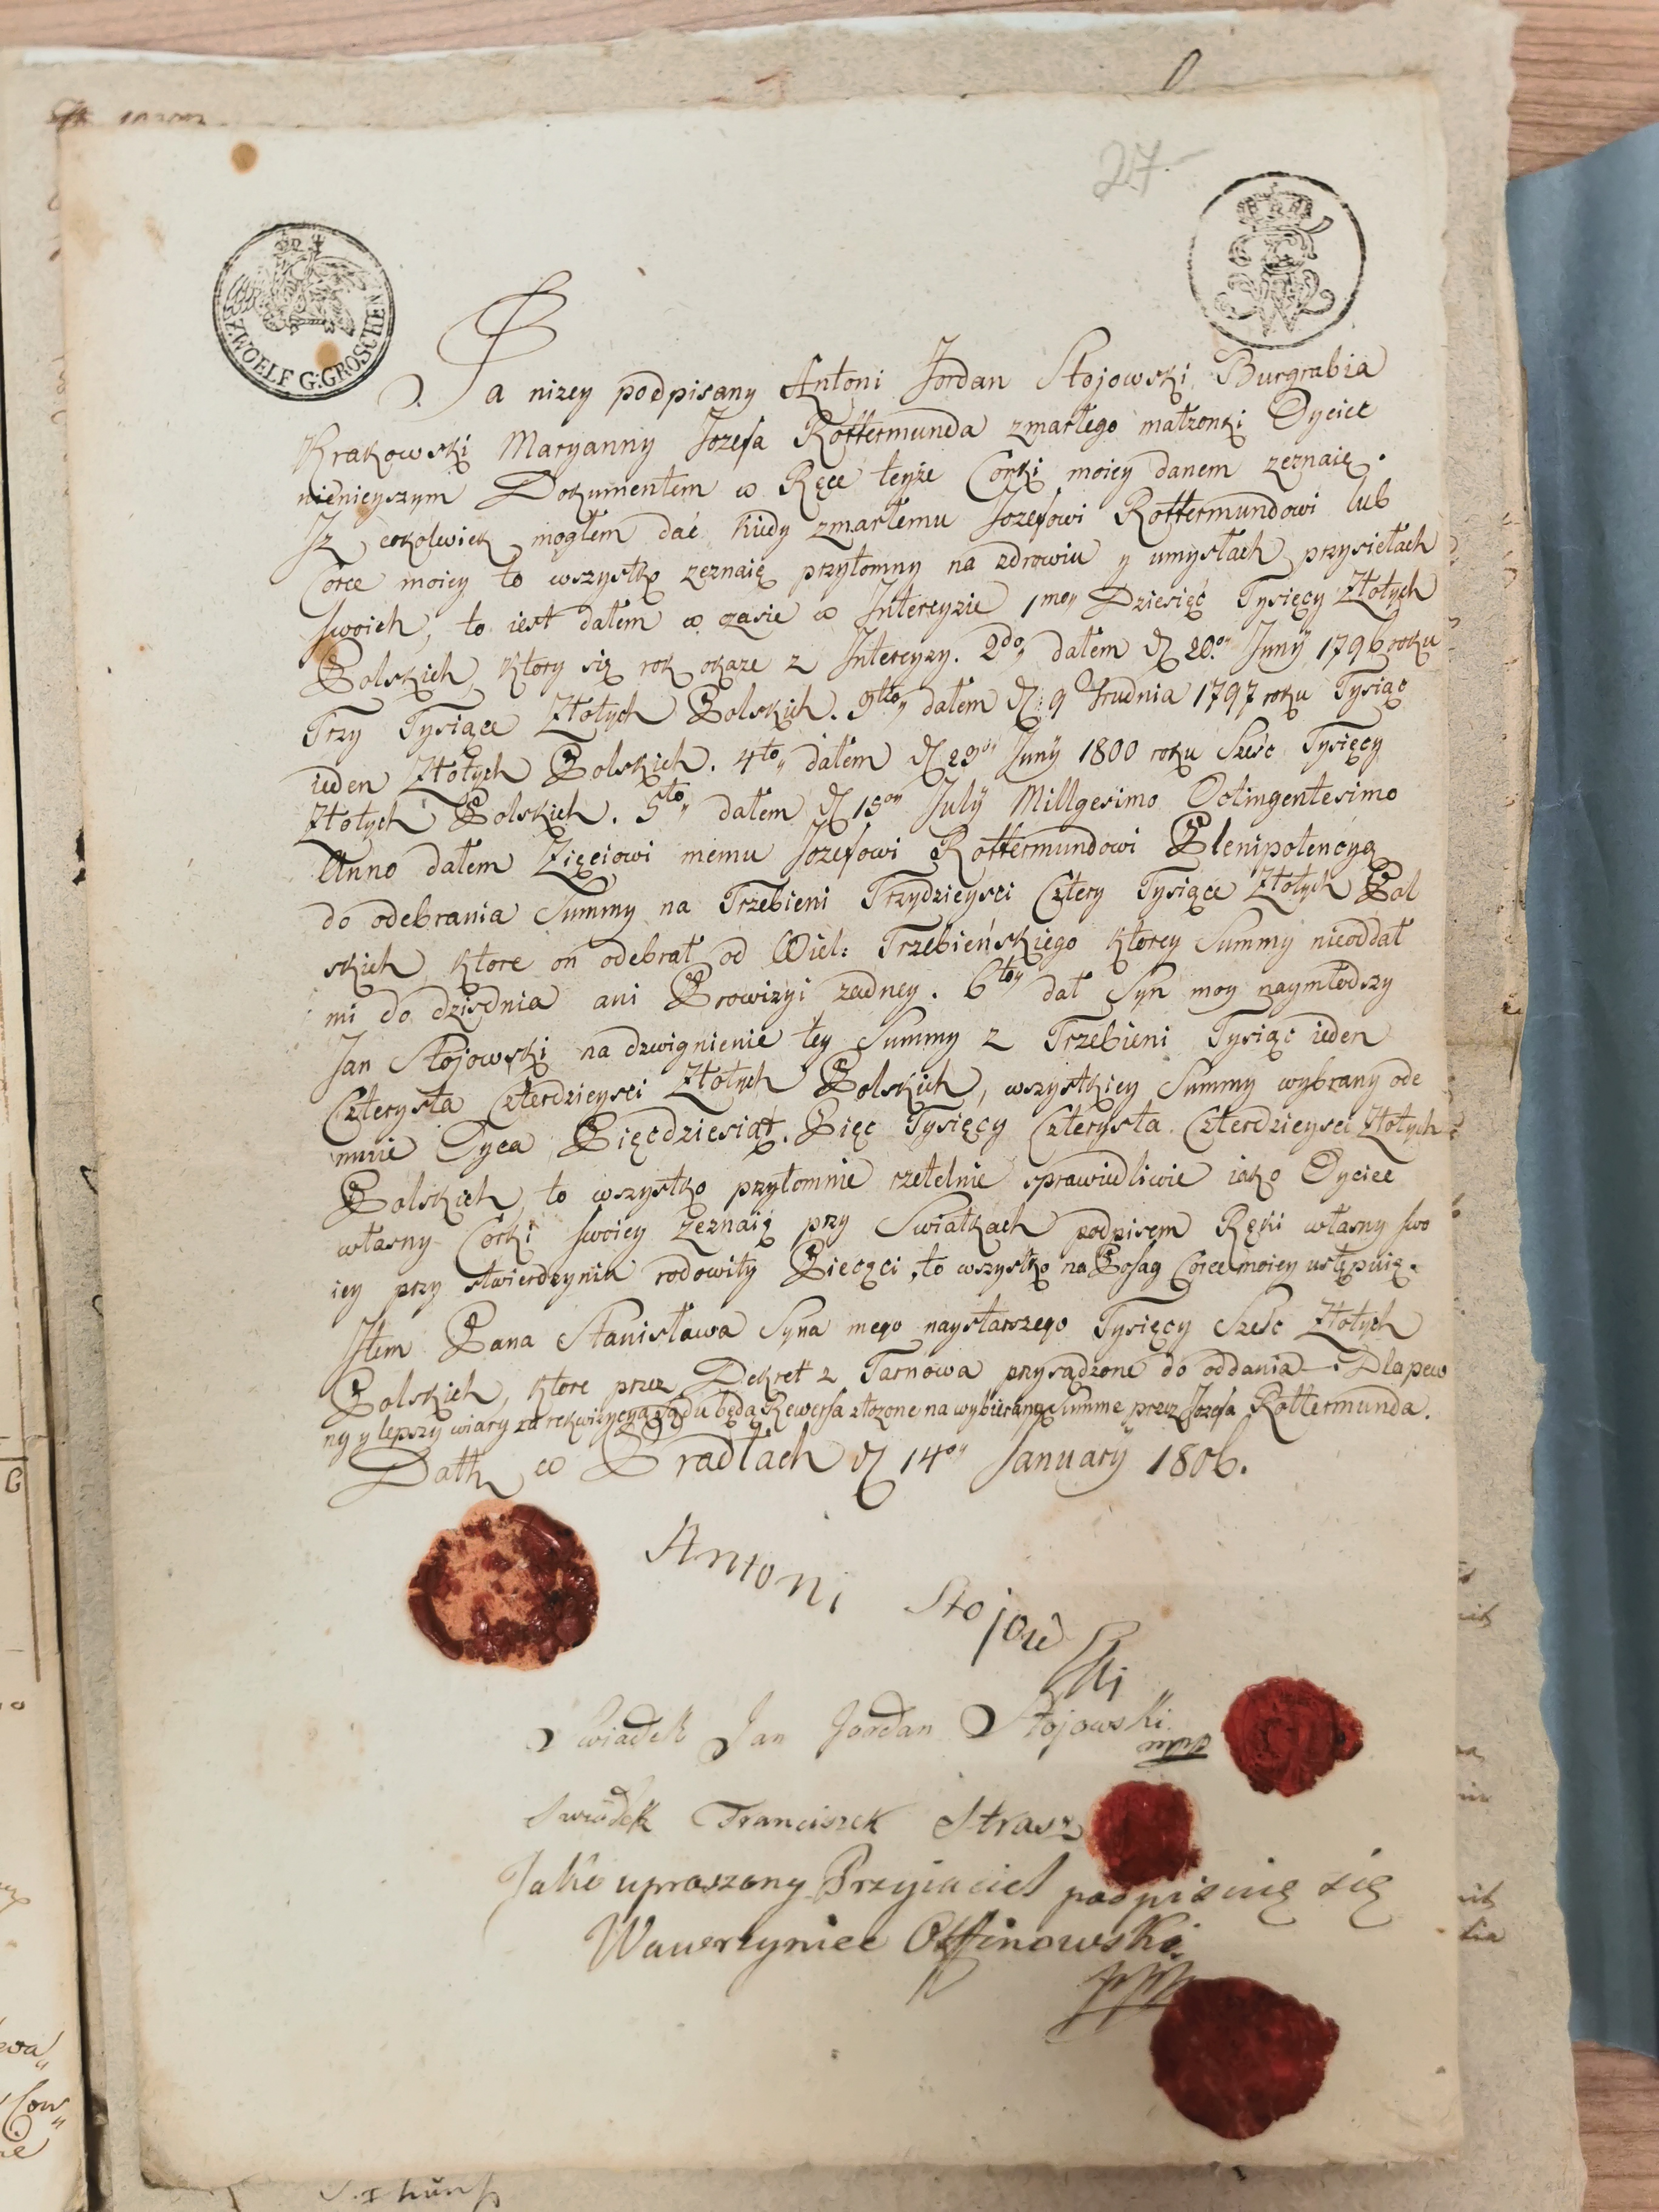 27.
ZWOELF G: GROSCHEN
Ja nizey podpisany Antoni Jordan Stojowski Burgrabia
Krakowski Maryanny Jozefa Rottermunda zmarłego małzonki Oyciec
nieniejszym Dokumentem w Ręce teyże Corki moiey danem zeznaię.
Iz cokolwiek mogłem dać kiedy zmarłemu Jozefowi Rottermundowi lub
Corce moiey to wszystko zeznaię przytomny na zdrowiu y umysłach przysiełach
swoich, to iest dałem w czasie w Intercyzie 1mo„ Dziesięć Tysięcy Złotych
Polskich, ktory się rok okaze z Intercyzy. 2do„ dałem d 20.o„ Juny 1796 roku
Trzy Tysiące Złotych Polskich. 3tio„ dałem d: 9 Grudnia 1797 roku Tysiąc
ieden Złotych Polskich. 4to„ dałem d 23o„ Juny 1800 roku Sześc Tysięcy
Złotych Polskich. 5to„ dałem d 15o„ July Millgesimo Octingentesimo
Anno dałem Zięciowi memu Jozefowi Rottermundowi Plenipotencyą
do odebrania Summy na Trzebieni Trzydzieysci Cztery Tysiące Złotych Pol
skich, ktore on odebrał od Wiel: Trzebieńskiego ktorey Summy nieoddał
mi do dzisdnia ani Prowizyi zadney. 6to„ dał Syn moy naymłodszy
Jan Stojowski na dzwignienie tey Summy z Trzebieni Tysiąc ieden
Czterysta Czterdzieysci Złotych Polskich, wszystkiey Summy wybrany ode
mnie Oyca Pięcdziesiąt Pięc Tysięcy Czterysta Czterdzieysci Złotych
Polskich, to wszystko przytomnie rzetelnie sprawiedliwie iako Oyciec
własny Corki swoiey zeznaię przy Swiatkach podpisem Ręki własny swo
iey przy stwierdzyniu rodowity Pieczęci, to wszystko na Posag Corce moiey ustępuię.
Item Pana Stanisława Syna mego naystarszego Tysięcy Sześc Złotych
Polskich, ktore przez Dekret z Tarnowa przysądzone do oddania. Dla pew
ny y lepszy wiary za rekwizycyą sądu będą Rewersa złozone na wybieraną Summe przez Jozefa Rottermunda.
Dath w Pradłach d 14o„ January 1806.
Antoni Stojowski
Swiadek Jan Jordan Stojowski
mpp
Swiadek Franciszek Strasz
Jako uproszony Przyiaciel podpisuię się
Wawrzyniec Ossinowski
mpp